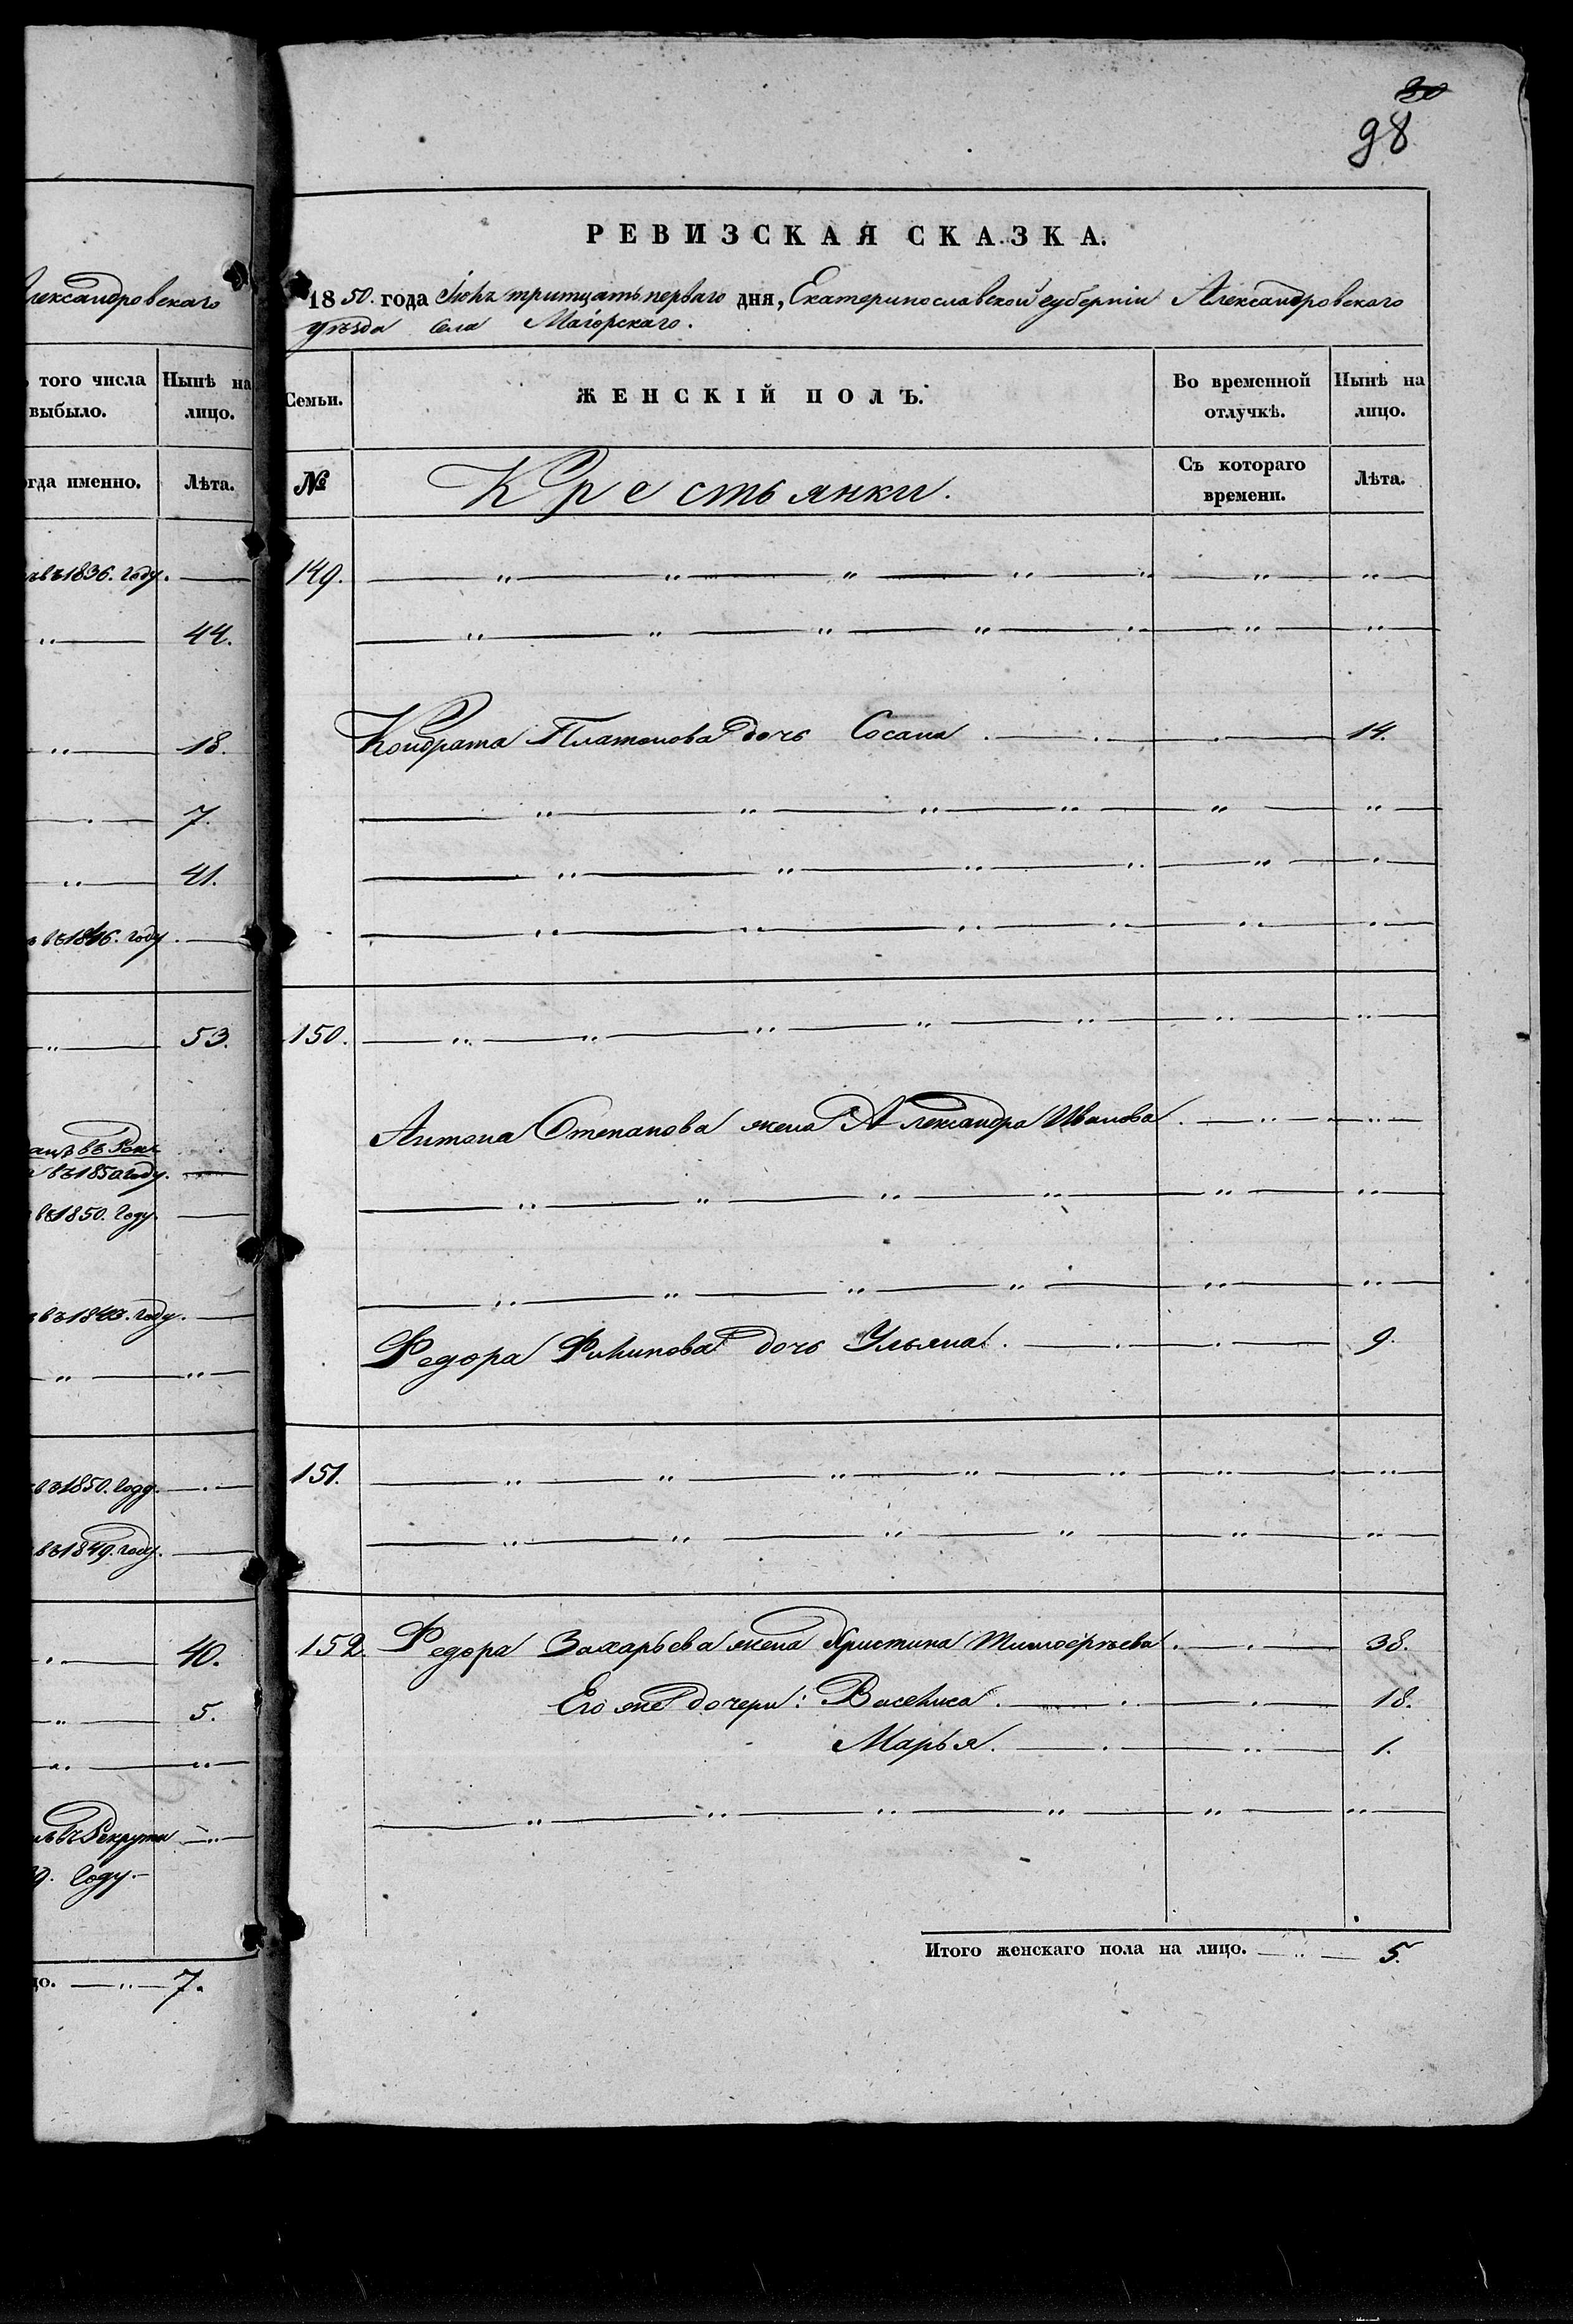 30
98
РЕВИЗСКАЯ СКАЗКА.
1850. года Іюля тритцать перваго дня, Екатеринославской губерніи Александровскаго
уѣзда села Маіорскаго.
Семьи.
ЖЕНСКІЙ ПОЛЪ.
Во временной отлучкѣ.
Нынѣ на лицо.
№
Крестьянки.
Съ котораго времени.
Лѣта.
149.
Кондрата Платонова дочь Сосана 14.
150.
Антона Степанова жена Александра Иванова
Федора Филипова дочь Ульяна. 9.
151.
152. Федора Захарьева жена Христина Тимоѳѣева 38.
Его же дочери: Василиса 18.
Марья. 1.
Итого женскаго пола на лицо. 5.
Александровскаго
того числа выбыло.
Нынѣ на лицо.
огда именно.
Лѣта.
въ 1836. году.
44.
18.
7.
41.
въ 1846. году
53.
въ 1850 году.
въ 1850. году.
въ 1843. году.
въ 1850. году.
въ 1849. году.
40.
5.
въ Рекруты
9. году.
цо. 7.